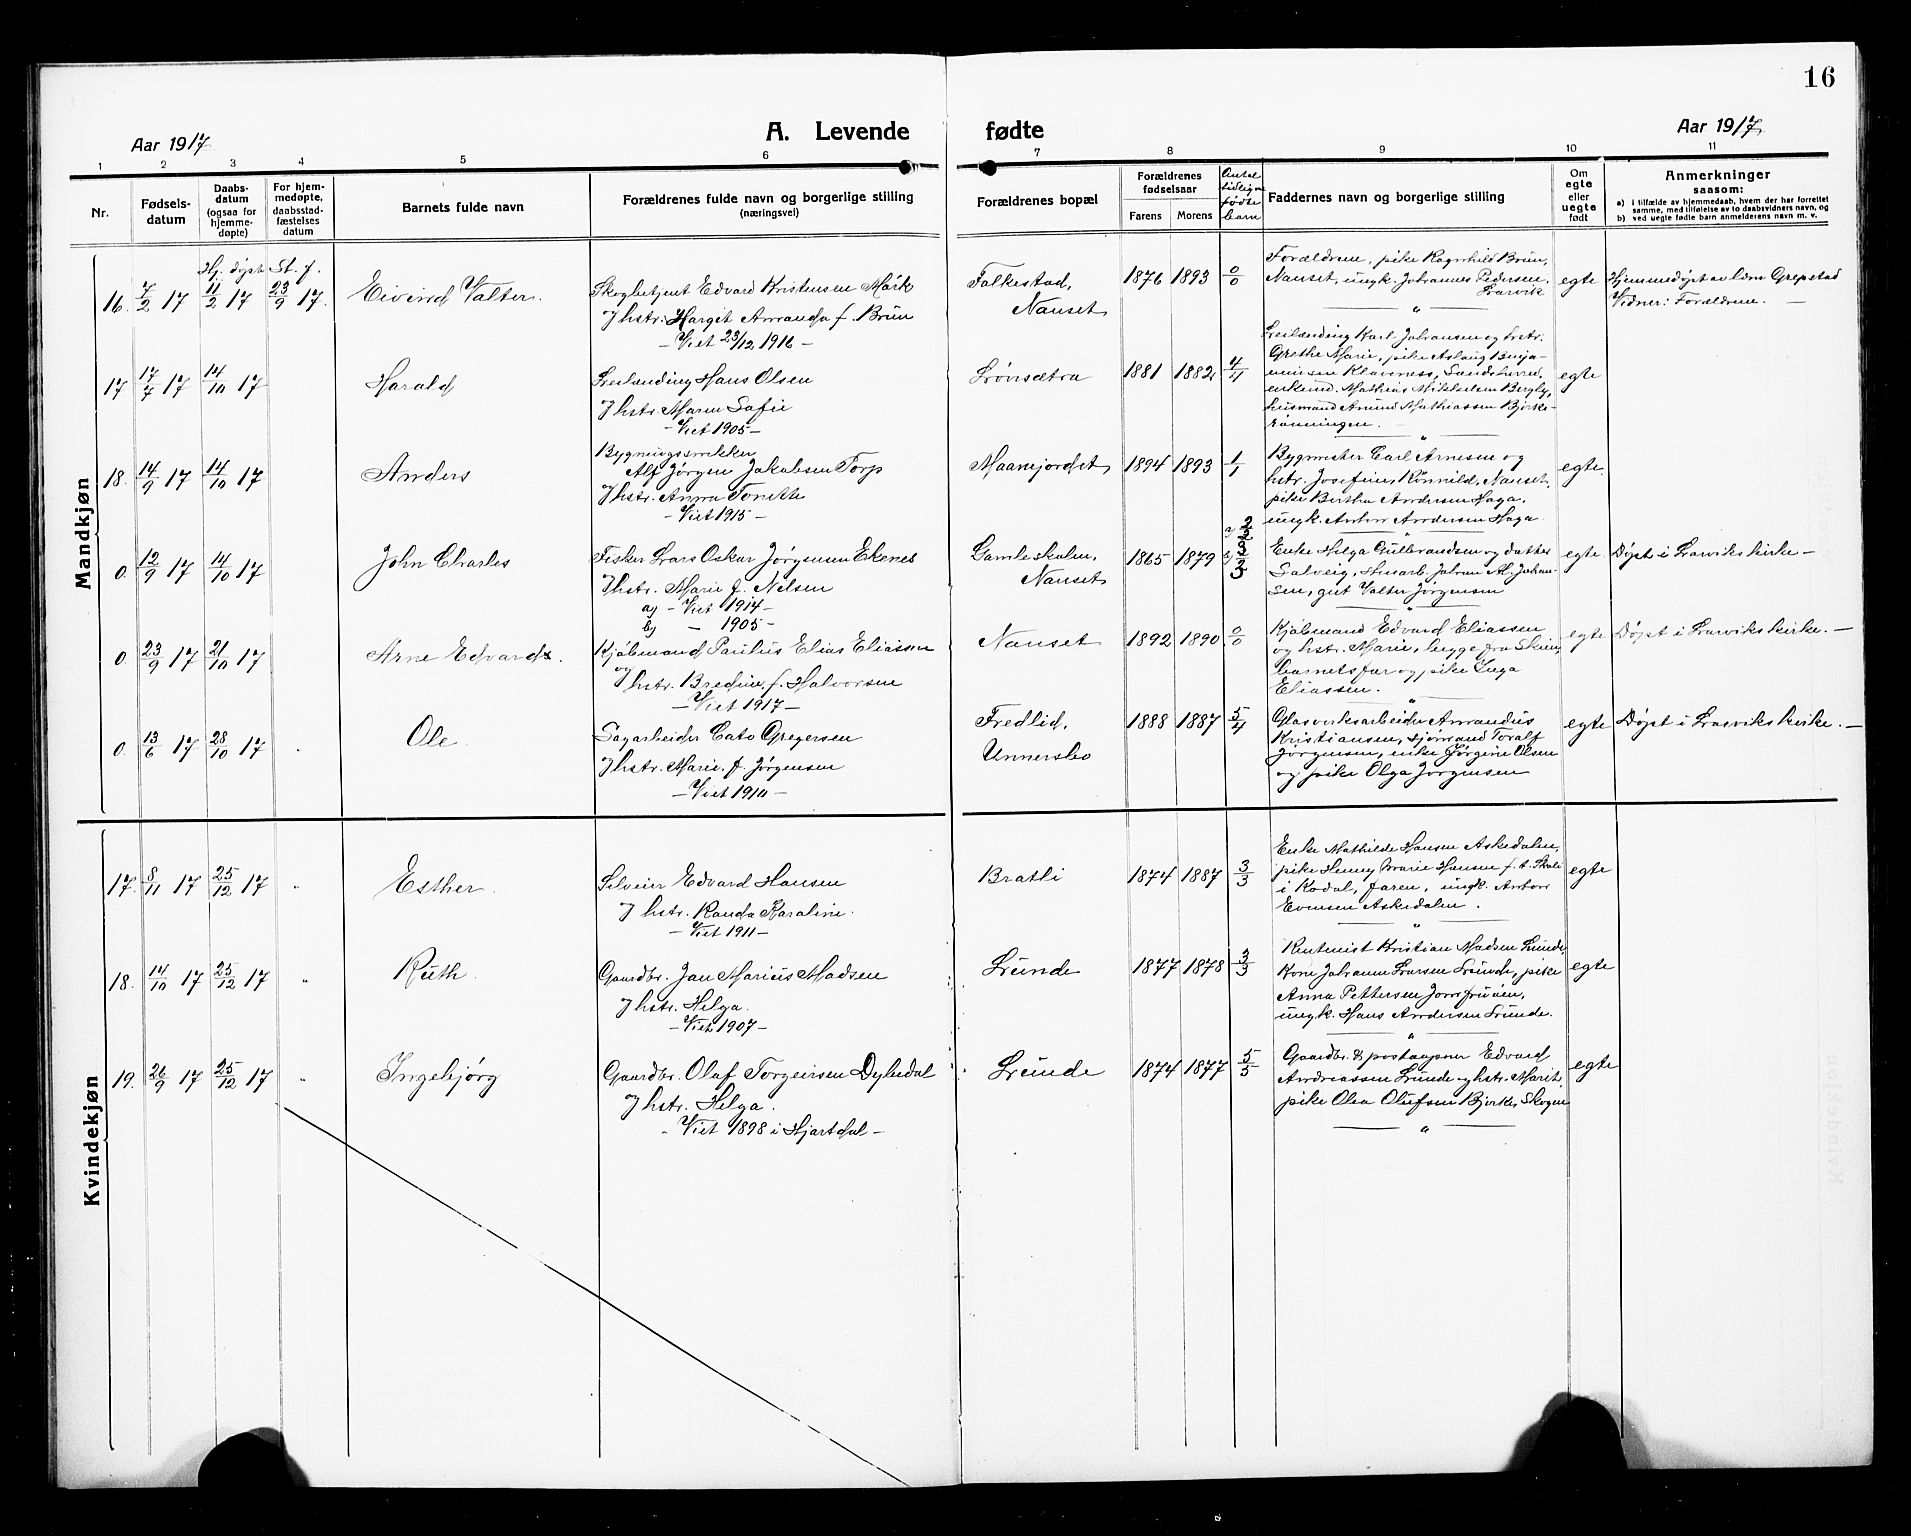 16
Aar 1917
A. Levende
fødte
Aar 1917
1 2 3 4 5 6 7 8 9 10 11
Nr.
Fødsels-
datum
Daabs-
datum
(ogsaa for
hjemme-
døpte)
For hjem-
medøpte,
daabsstad-
fæstelses
datum
Barnets fulde navn
Forældrenes fulde navn og borgerlige stilling
(næringsvei)
Forældrenes bopæl
Forældrenes
fødselsaar
Farens Morens
Antal
tidligere
fødte
barn
Faddernes navn og borgerlige stilling
Om
egte
eller
uegte
født
Anmerkninger
saasom:
a) i tilfælde av hjemmedaab, hvem der har forrettet
samme, med tilføielse av to daabsvidners navn, og
b) ved uegte fødte barn anmelderens navn m. v.
Mandkjøn
Hj. døpt St. f.
16. 7/2 17 11/2 17 23/9 17. Eivind Valter.
Skogbetjent Edvard Kristensen Mørk
Hstr. Margit Amanda f. Brun
- Viet 23/12 1916 -
Falkestad,
Nanset
1876 1893 0/0
Forældrene, pike Ragnhild Brun,
Nanset, ungk. Johannes Pedersen,
Larvik
egte
Hjemmedøpt av lærer Grepstad
Vidner: Forældrene. —
17 17/7 17 14/10 17 Harald
Leilænding Hans Olsen
Hstr. Maren Sofie
- Viet 1905 -
Lrønsætra
1881 1882 4/4
Leilænding Karl Johansen og hstr.
Grethe Marie, pike Aslaug Benja-
minsen Klaveness, Sandeherred,
enkemd. Mathias Mikkelsen Bergby,
husmand Amund Mathiassen Bjørke-
rønningen.
egte
18. 14/9 17 14/10 17 Anders
Bygningssnekker
Alf Jørgen Jakobsen Torp
Hstr. Anna Tonette
- Viet 1915 -
Maanejordet
1894 1893 1/1
Bygmester Carl Arnesen og
hstr. Josefine, Rønnild, Nanset,
pike Bertha Andersen Haga,
ungk. Anton Andersen Haga.
egte.
0. 12/9 17 14/10 17 John Charles
Fisker Lars Oskar Jørgensen Ekenes
Hstr. Marie f. Nelsen
a) - Viet 1914 -
b) - 1905 -
Gamleskolen,
Nanset
1865 1879
Enke Helga Gulbrandsen og datter
Solveig, Husarb. Johan Al. Johan-
sen, gut Valter Jørgensen
egte
Døpt i Larviks kirke —
0. 23/9 17 21/10 17 Arne Edvard.
Kjøbmand Paulus Elias Eliassen
og
Hstr. Bredine f. Halvorsen
- Viet 1917 -
Nanset
1892 1890 0/0
Kjøbmand Edvard Eliassen
og hstr. Marie, begge fra Skien,
barnets far og pike Inga
Eliassen.
egte
Døpt i Larviks kirke. —
0. 13/6 17 28/10 17 Ole
Sagarbeider Cato Gregersen
Hstr. Marie f. Jørgensen
- Viet 1910 -
Fredlid,
Unnersbo
1888 1887 5/4
Glasverksarbeider Amandus
Kristiansen, sjømand Toralf
Jørgensen, enke Jørgine Olsen
og pike Olga Jørgensen
egte
Døpt i Larviks kirke. —
Kvindekjøn
17. 8/11 17 25/12 17 Esther.
Selveier Edvard Hansen
Hstr. Randa Karoline.
- Viet 1911 -
Bratli
1874 1887 3/3
Enke Mathilde Hansen Askedalen,
pike Henny Marie Hansen f. t. Skoli
i Kodal, faren, ungk. Anton
Evensen Askedalen.
egte
18. 14/10 17 25/12 17 Ruth.
Gaardbr. Jan Marius Madsen
Hstr. Helga.
- Viet 1907 -
Lunde
1877 1878 3/3
Rentenist Kristian Madsen Lunde,
Kone Johanne Larsen Lunde, pike
Anna Pettersen Jomfruøen,
ungk. Hans Andersen Lunde.
egte
19. 26/9 17 25/12 17 Ingebjørg
Gaardbr. Olaf Torgeirsen Dyledal
Hstr. Helga.
- Viet 1898 i Hjartdal -
Lunde
1874 1877 5/5
Gaardbr. & postaapner Edvard
Andreassen Lunde og hstr. Marit,
pike Olea Olufsen Bjerke, Skogen
egte